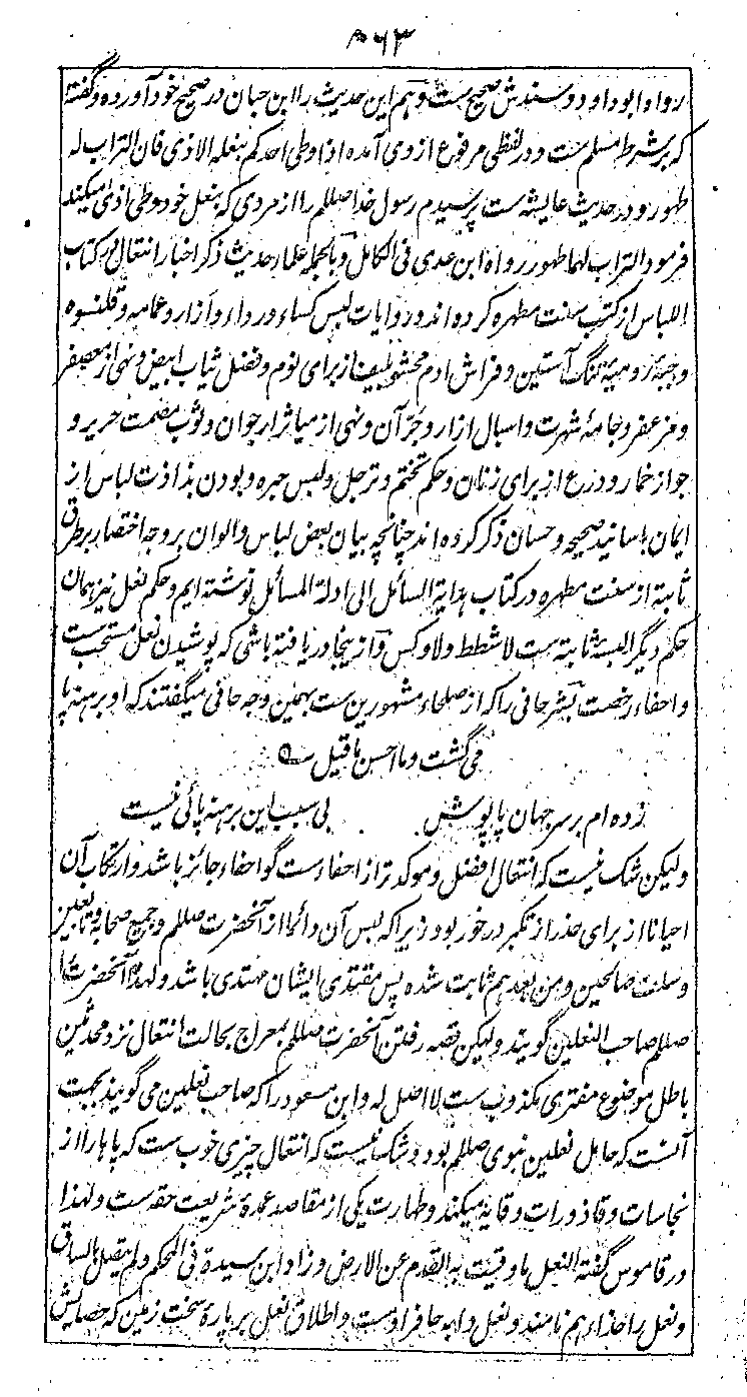 ۵۶۳
رواه ابو داود و سندش صحیح ست و هم این حدیث را ابن حبان در صحیح خود آورده و گفته
که بر شرط مسلم ست و در لفظی مرفوع از وی آمده اذا وطی احدکم بنعله الاذی فان التراب له
طهور و در حدیث عایشه ست پرسیدم رسول خدا صللم را از مردی که بنعل خود وطی اذی میکند
فرمود التراب لهما طهور رواه ابن عدی فی الکامل و بالجمله علماء حدیث ذکر اخبار انتعال در کتاب
اللباس از کتب سنت مطهره کرده اند و روایات لبس کساء و رداء و آزار و عمامه و قلنسوه
و جبهٔ رومیهٔ تنگ آستین و فراش ادم محشو بلیف از برای نوم و فضل ثیاب ابیض و نهی از معصفر
و مزعفر و جامهٔ شهرت و اسبال ازار و جرّ آن و نهی از میاثر ارجوان و ثوب مصمت حریر و
جواز خمار و درع از برای زنان و حکم تختم و ترجل و لبس حبره و بودن بذاذت لباس از
ایمان باسانید صحیحه و حسان ذکر کرده اند چنانچه بیان بعض لباس و الوان بر وجه اختصار بر طرق
ثابته از سنت مطهره در کتاب هدایة السائل الی ادلة المسائل نوشته ایم و حکم نعل نیز همان
حکم دیگر البسهٔ ثابته ست لا شطط ولا وکس و از ینجا دریافته باشی که پوشیدن نعل مستحب ست
و احفاء رخصت بشر حافی را که از صلحاء مشهورین ست بهمین وجه حافی میگفتند که او برهنه پا
می گشت و ما احسن ما قیل
زده ام بر سر جهان پاپوش بی سبب این برهنه پائی نیست
ولیکن شک نیست که انتعال افضل و موکد تر از احفاء ست گو احفاء جائز باشد و ارتکاب آن
احیانا از برای حذر از تکبر در خور بود زیرا که لبس آن دائما از آنحضرت صللم و جمیع صحابه و تابعین
و سلف صالحین و من بعدهم ثابت شده پس مقتدی ایشان مهتدی باشد و لهذا آنحضرت را
صللم صاحب النعلین گویند ولیکن قصه رفتن آنحضرت صللم بمعراج بحالت انتعال نزد محدثین
باطل موضوع مفتری مکذوب ست لا اصل له و ابن مسعود را که صاحب نعلین می گویند بجهت
آنست که حامل نعلین نبوی صللم بود و شک نیست که انتعال چیزی خوب ست که پا را از
نجاسات و قاذورات وقایه میکند و طهارت یکی از مقاصد عمدهٔ شریعت حقه ست و لهذا
در قاموس گفته النعل ما وقیت به القدم عن الارض و زاد ابن سیده فی المحکم ولم یتصل بالساق
و نعل را حذاء هم نامند و نعل دابه حافر اوست و اطلاق نعل بر پارهٔ سخت زمین که حصایش